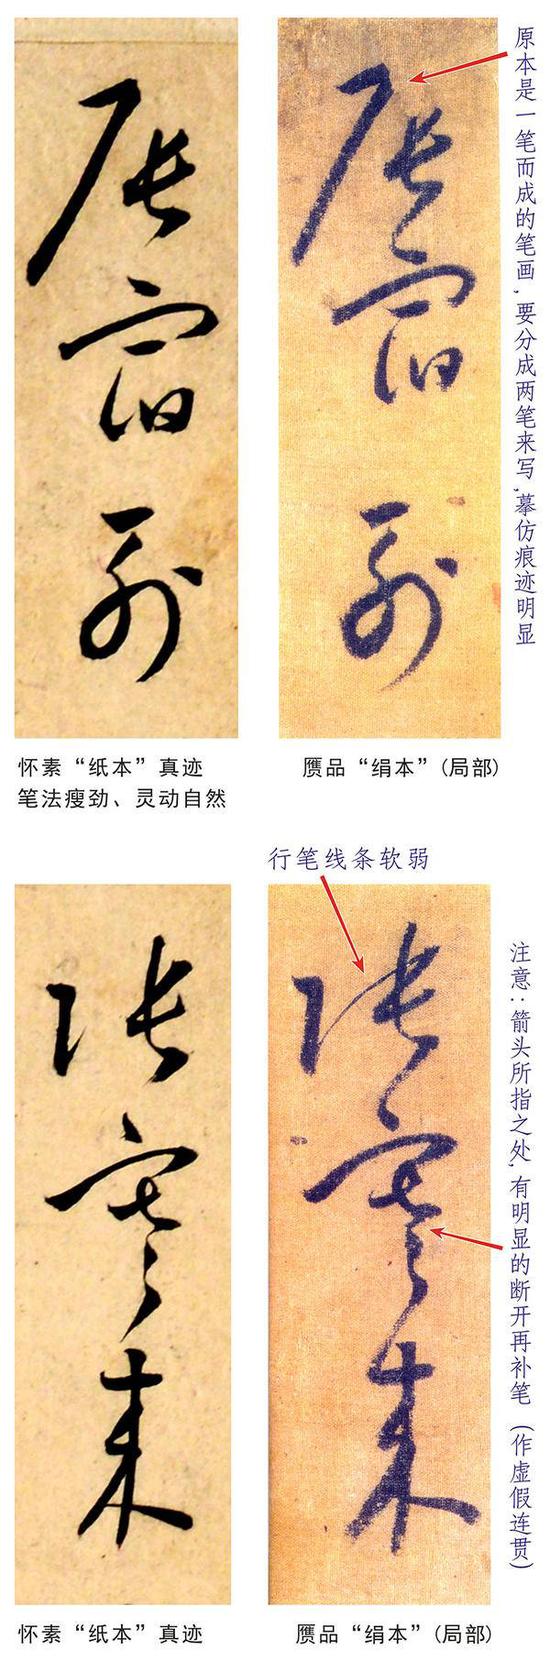 辰宿列
原本是一笔而成的笔画,要分成两笔来写,摹仿痕迹明显
辰宿列
怀素“纸本”真迹
笔法瘦劲、灵动自然
赝品“绢本”(局部)
行笔线条软弱
张寒来
张寒来
注意:箭头所指之处,有明显的断开再补笔(作虚假连贯)
怀素“纸本”真迹
赝品“绢本”(局部)